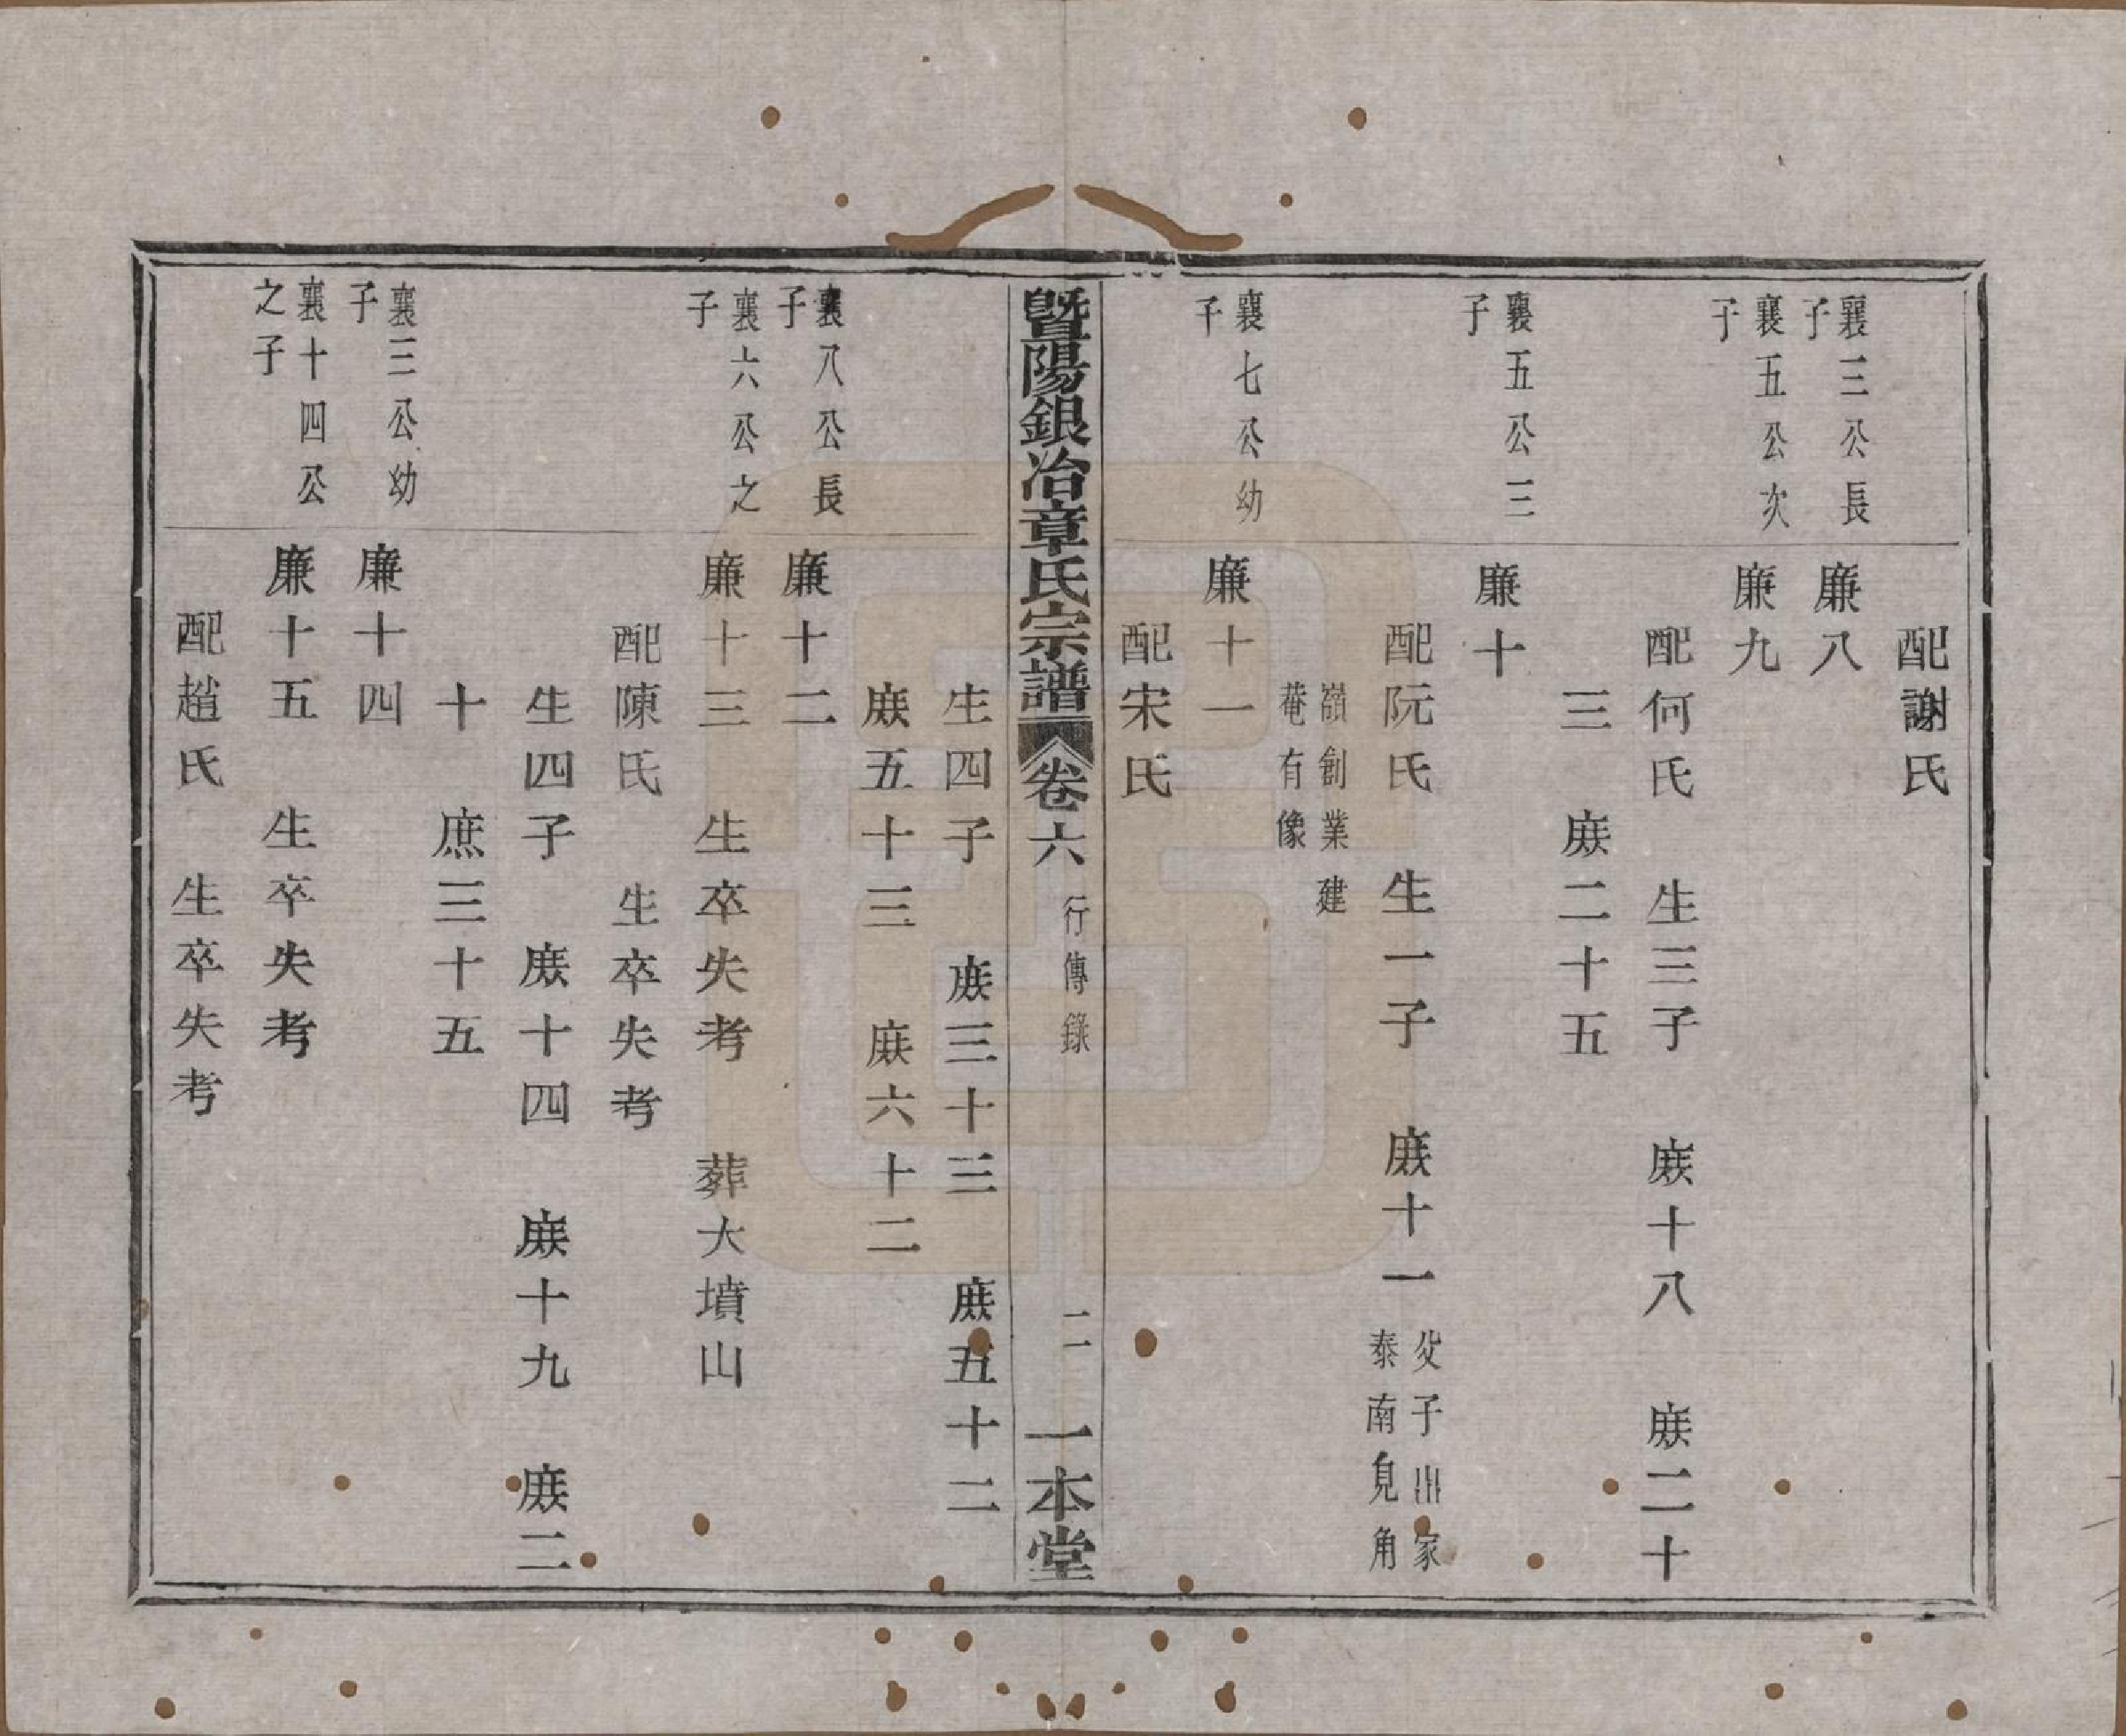 配謝氏
襄三公長
子
廉八
襄五公次
子
廉九
配何氏　生三子　庻十八　庻二十
三　庻二十五
襄五公三
子
廉十
配阮氏　生一子　庻十一
父子出家
泰南皃角
嶺創業建
菴有像
襄七公幼
子
廉十一
配宋氏
暨陽銀冶章氏宗譜　卷六　行傳錄　二　一本堂
生四子　庻三十三　庻五十二
庻五十三　庻六十二
襄八公長
子
廉十二
襄六公之
子
廉十三　生卒失考　葬大墳山
配陳氏　生卒失考
生四子　庻十四　庻十九　庻二
十　庶三十五
襄三公幼
子
廉十四
襄十四公
之子
廉十五　生卒失考
配趙氏　生卒失考